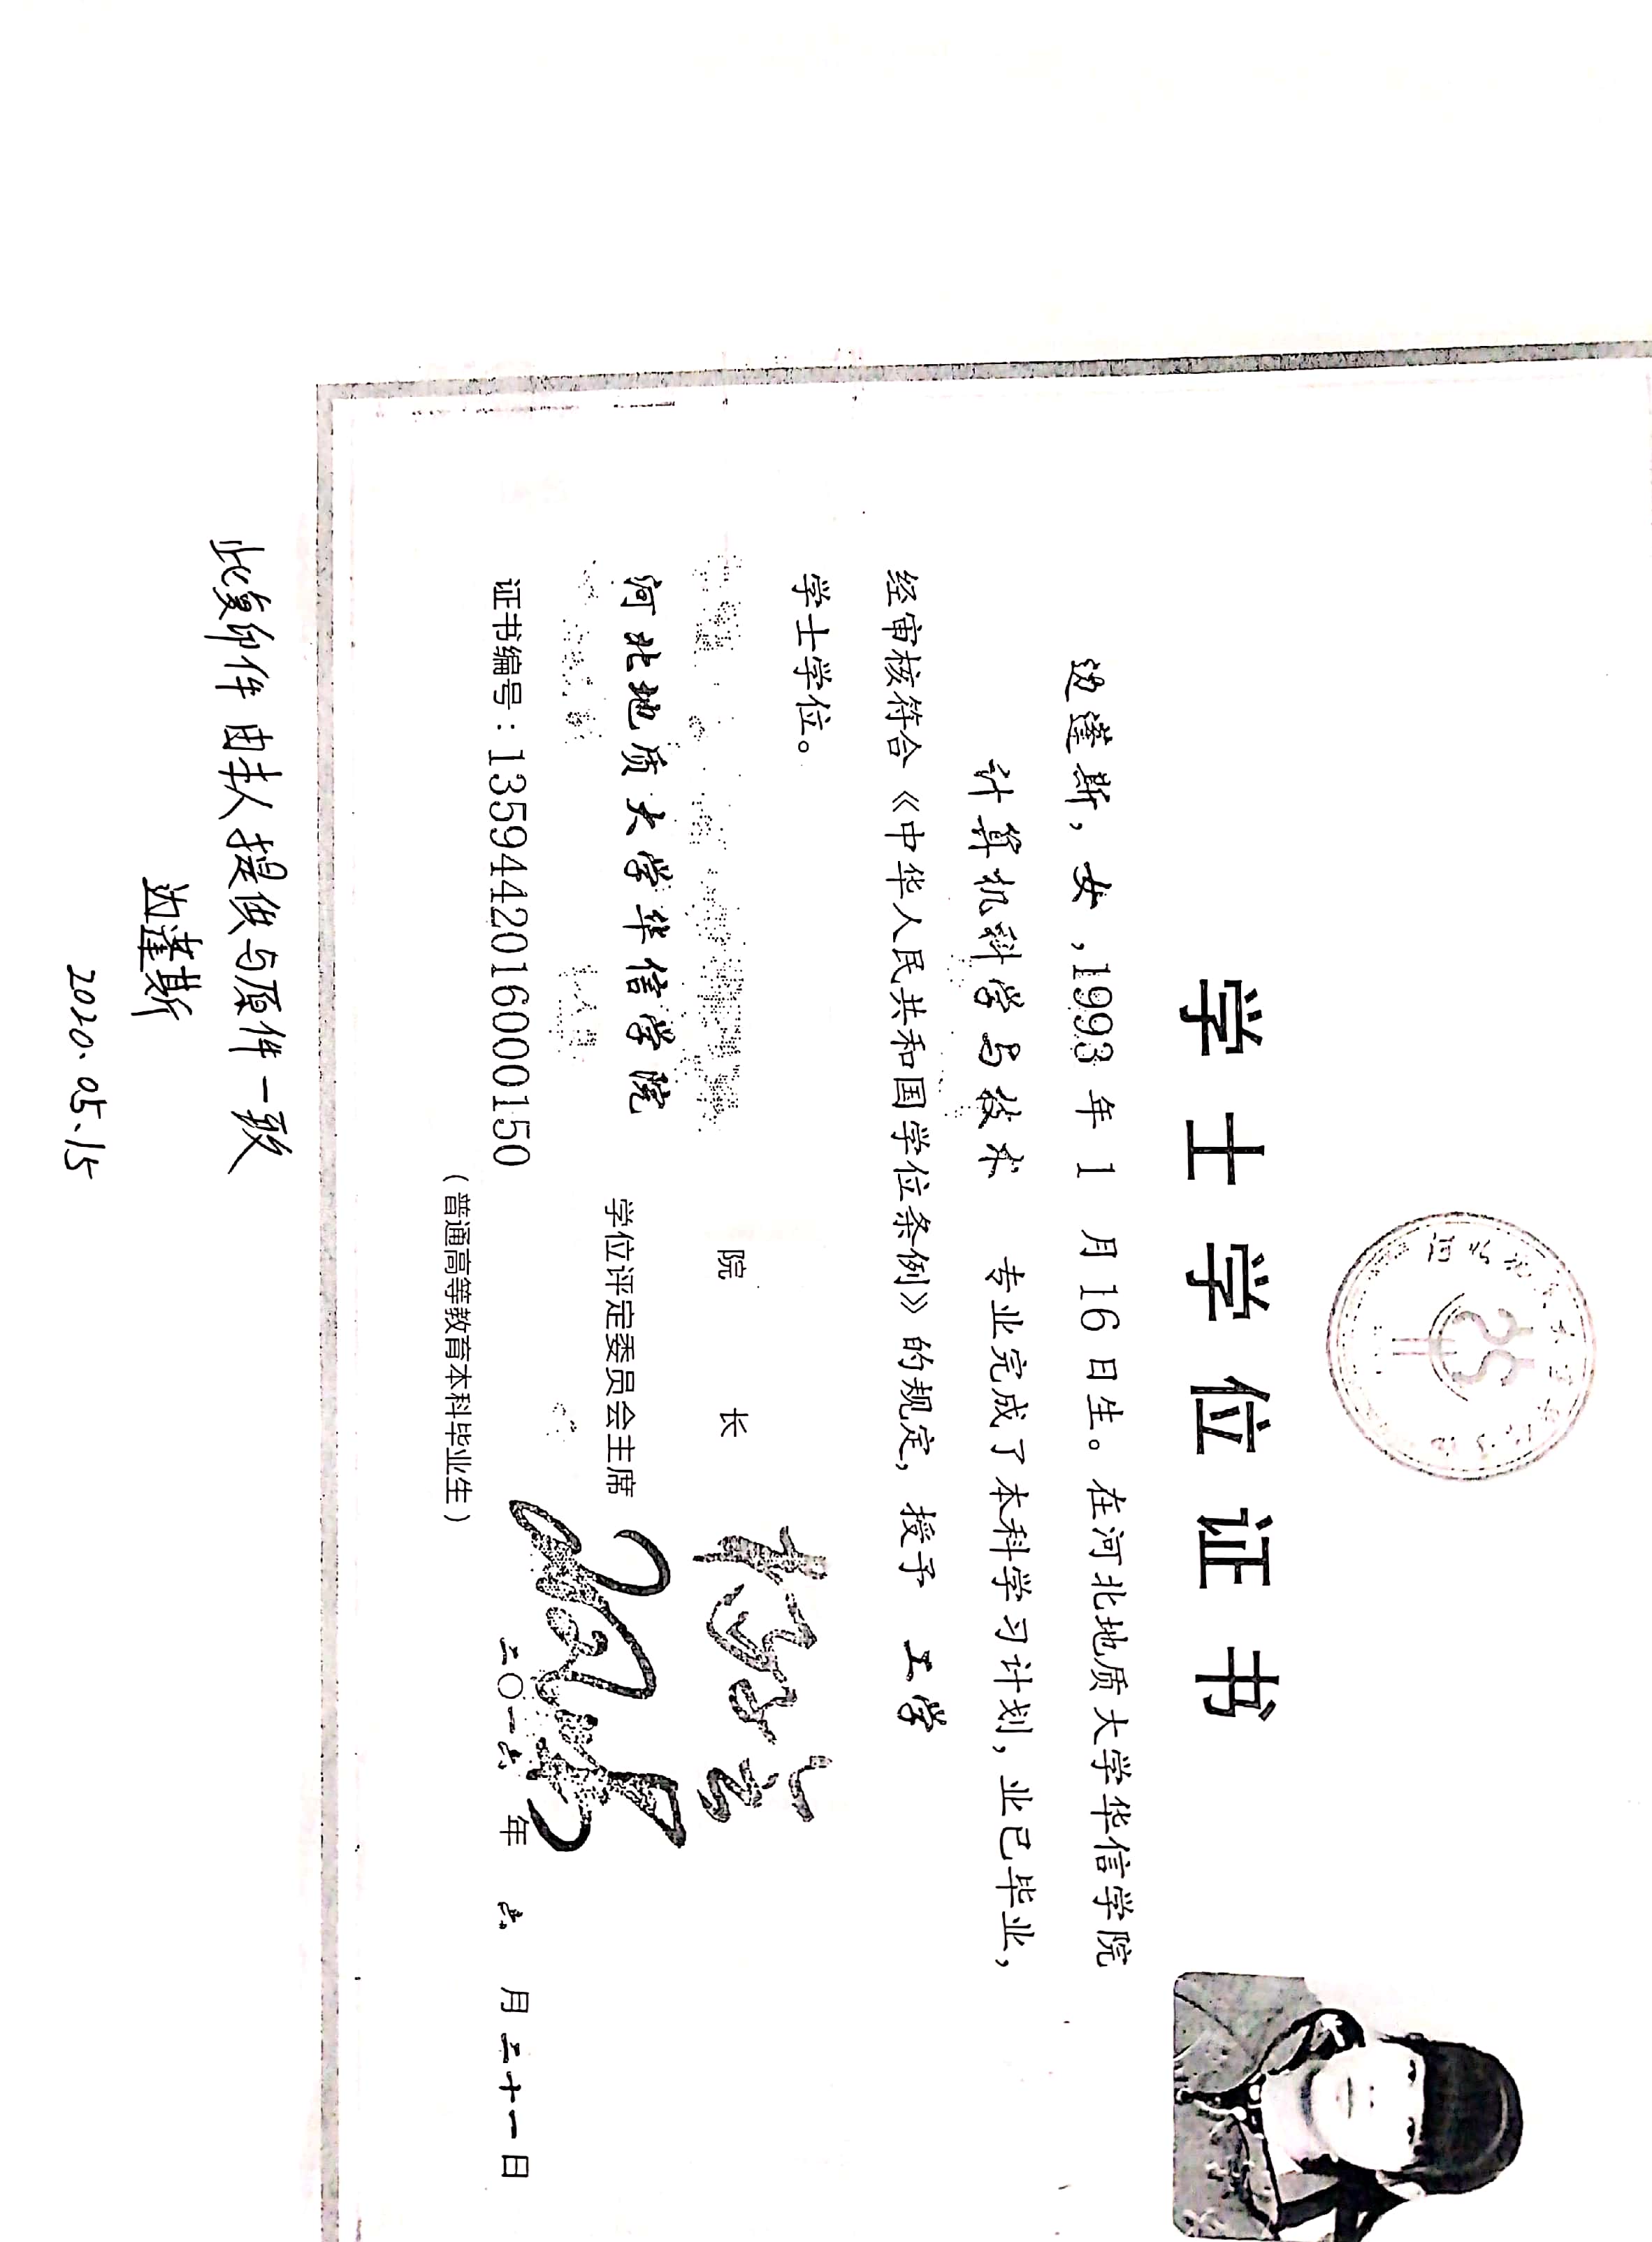 学士学位证书
边蓬斯，女，1993年1月16日生。在河北地质大学华信学院
计算机科学与技术 专业完成了本科学习计划，业已毕业，
经审核符合《中华人民共和国学位条例》的规定，授予 工学
学士学位。
院 长
河北地质大学华信学院
学位评定委员会主席
证书编号：1359442016000150
二〇一六年六月二十一日
（普通高等教育本科毕业生）
此复印件由本人提供与原件一致
边蓬斯
2020.05.15